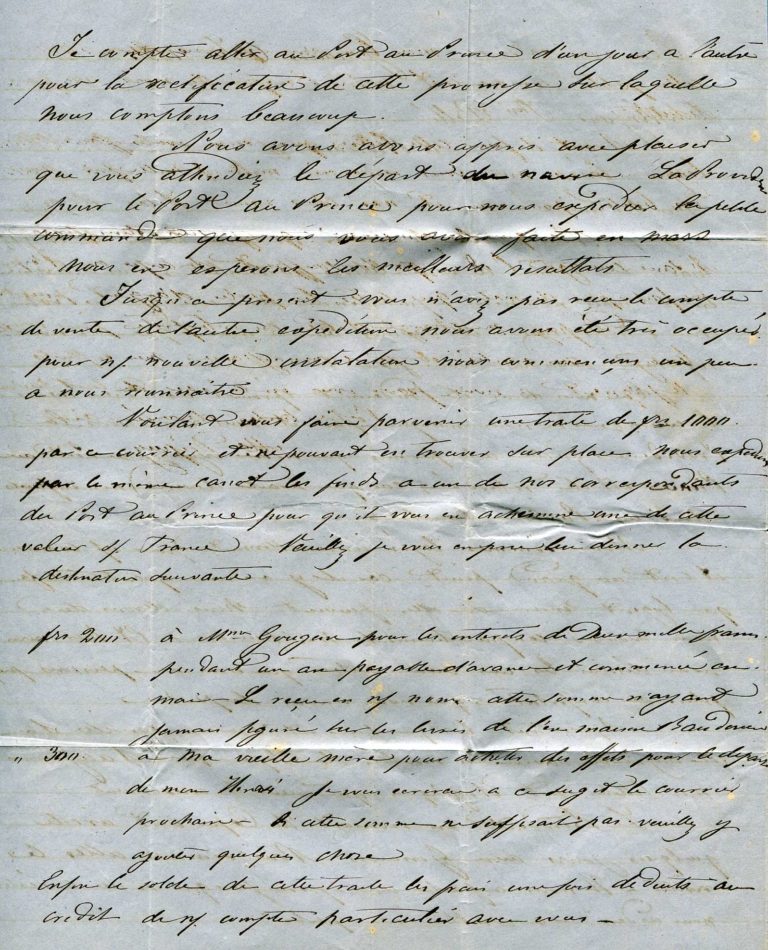 Je compte aller au Port au Prince d'un jour a l'autre
pour la rectification de cette promesse sur laquelle
nous comptons beaucoup.
Nous avons avons appris avec plaisir
que vous attendiez le départ du navire La
pour le Port au Prince pour nous expedier la petite
commande que nous vous avons faite en mars
nous en esperons les meilleurs resultats
Jusqu'a present vous n'avez pas recu le compte
de vente de l'autre expédition nous avons été très occupés
pour n/ nouvelle instalation nous commençons un peu
a nous reconnaitre
Voulant vous faire parvenir une traite de frs 1000.
par ce courrier et ne pouvant en trouver sur place nous expedions
par le même canot les fonds a un de nos correspondants
du Port au Prince pour qu'il vous en achemine une de cette
valeur s/ France Veuillez je vous en prie lui donner la
destination suivante
frs 200. à Mme pour les interets de Deux mille francs
pendant un an payable d'avance et commencé en
mai - Le reçu en n/ nom cette somme n'ayant
jamais figuré sur les livres de l'en maison
" 300. à ma vieille mère pour acheter des effets pour le départ
de mon Je vous ecrirai a ce sujet le courrier
prochain - Si cette somme ne suffisait pas veuillez y
ajouter quelque chose
Enfin le solde de cette traite les frais une fois deduits au
credit de n/ compte particulier avec vous -